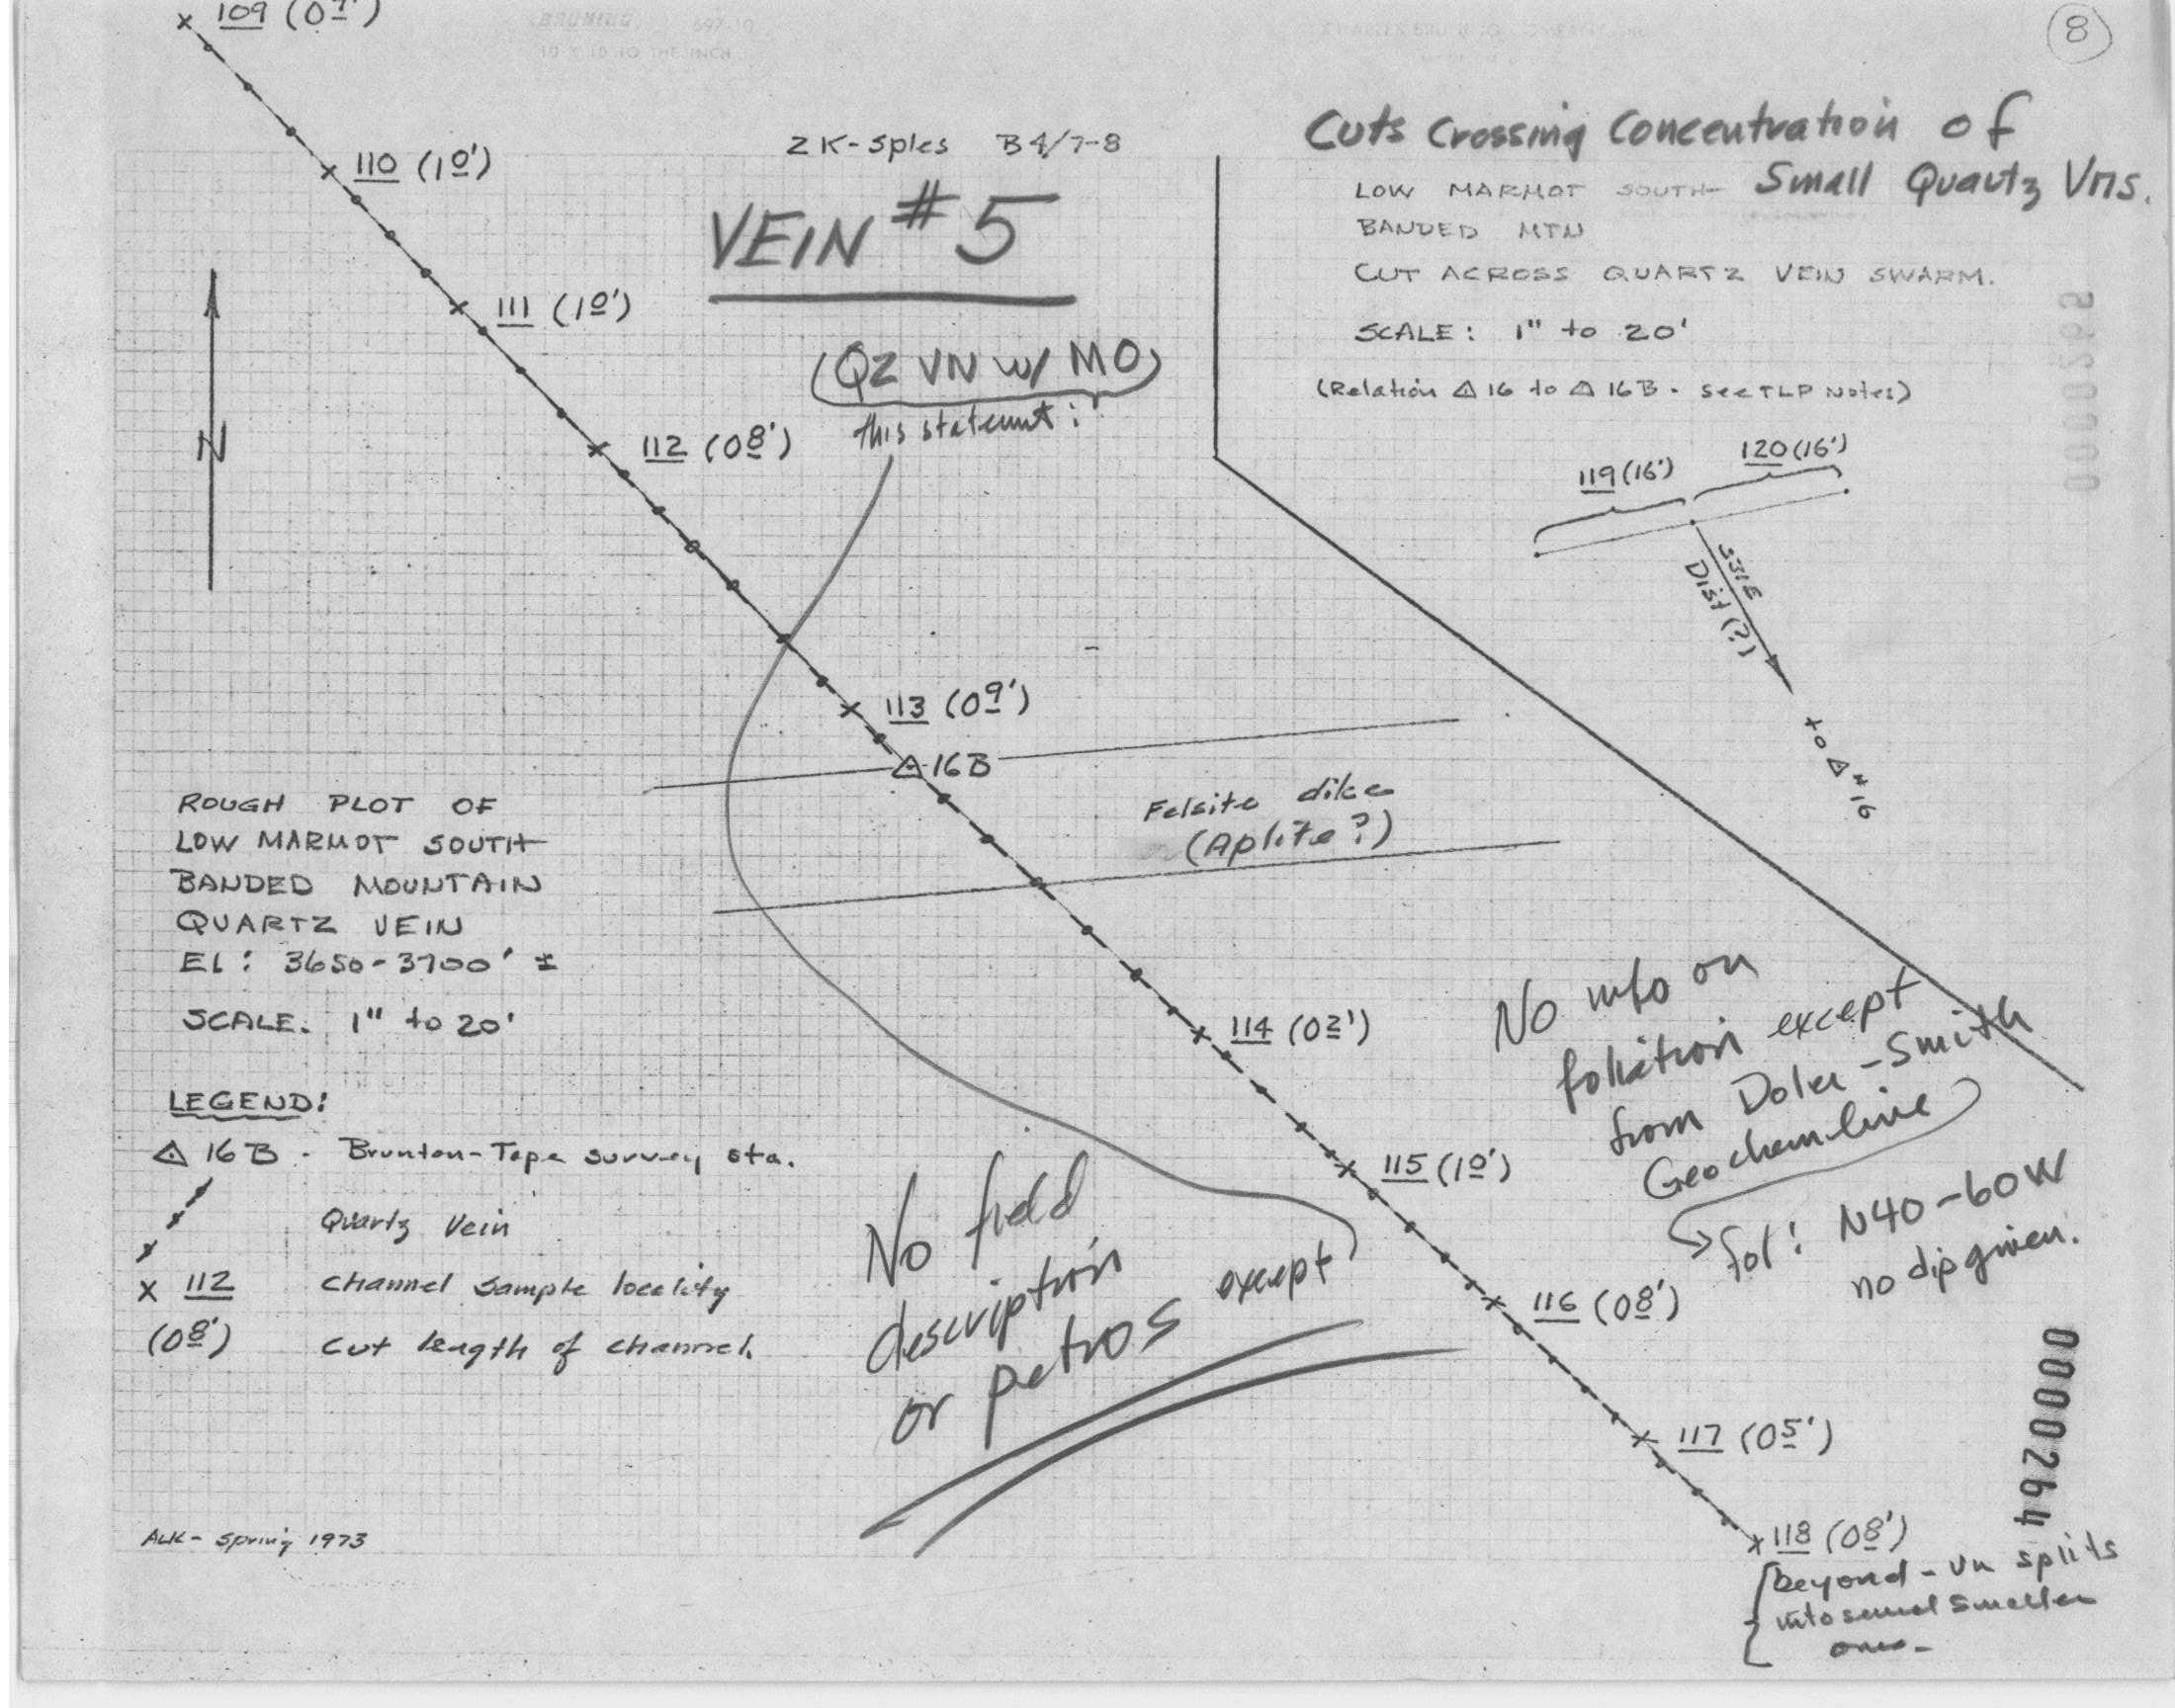 8
109 (0
BRUNING 697-10
10 X 10 TO THE INCH
110 (10')
111 (10')
112 (08')
2 K-Sples B4/7-8
VEIN #5
(QZ VN W/ MO)
this statemnt:
N
Cuts Crossing Concentration of
Small Quartz Vns.
LOW MARMOT SOUTH
BANDED MTN
CUT ACROSS QUARTZ VEIN SWARM.
SCALE: 1" to 20'
(Relation △ 16 to △ 16B - see TLP Notes)
0000265
119 (16')
120 (16')
S31E
Dist (?)
to △ # 16
113 (09')
△ 16B
Felsite dike
(Aplite?)
ROUGH PLOT OF
LOW MARMOT SOUTH
BANDED MOUNTAIN
QUARTZ VEIN
El: 3650-3700' ±
SCALE: 1" to 20'
LEGEND:
△ 16B - Brunton-Tape survey sta.
Quartz Vein
x 112 Channel sample locality
(08') Cut length of channel.
114 (02')
115 (10')
116 (08')
117 (05')
118 (08')
{beyond - vn splits
into several smaller
ones -
No field
description
or petros except
No info on
foliation except
from -Smith
Geochem line
fol: N40-60W
no dip given.
0000264
ALK - Spring 1973